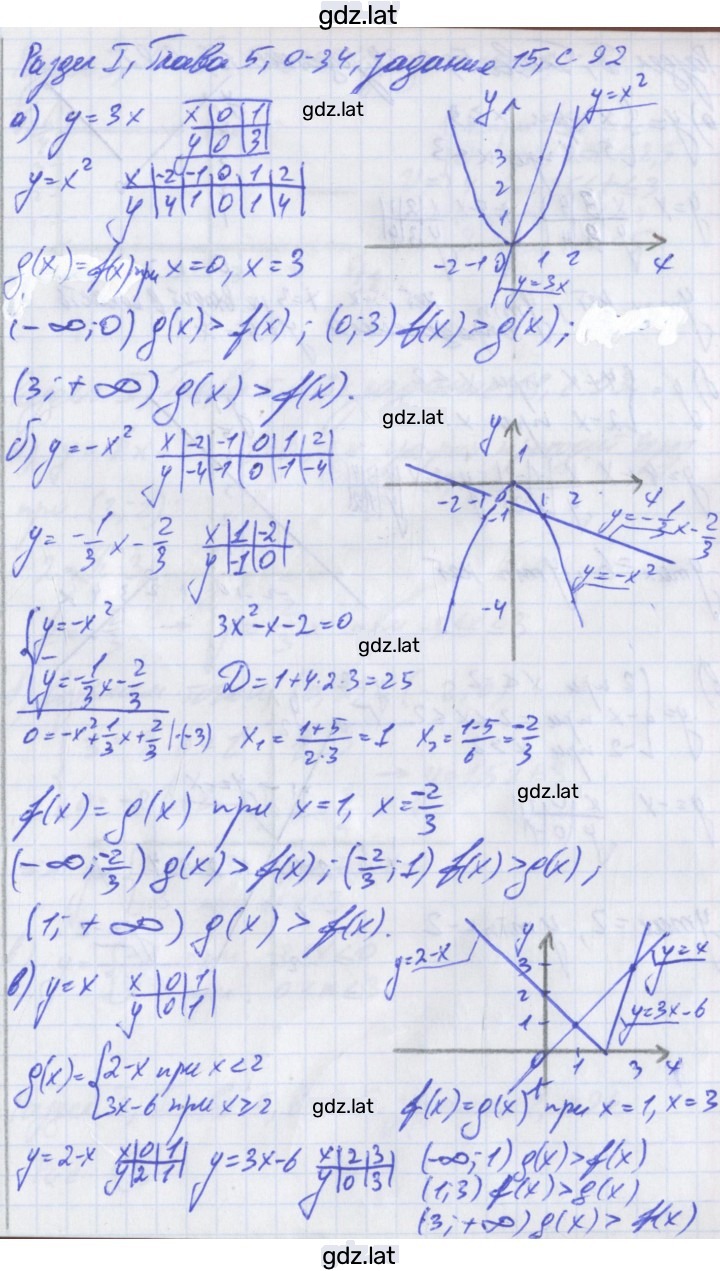 gdz.lat
Раздел I, Глава 5, О-34, задание 15, с 92
а) y = 3x x 0 1
y 0 3
gdz.lat
y = x² x -2 -1 0 1 2
y 4 1 0 1 4
y y = x²
3
2
1
-2 -1 0 1 2 x
y = 3x
g(x) = f(x) при x = 0, x = 3
(-∞; 0) g(x) > f(x); (0; 3) f(x) > g(x);
(3; +∞) g(x) > f(x).
gdz.lat
б) y = -x² x -2 -1 0 1 2
y -4 -1 0 -1 -4
y = -1/3 x - 2/3 x 1 -2
y -1 0
y
1
-2 -1 0 1 2 x
-1
-4
y = -1/3 x - 2/3
y = -x²
{ y = -x² 3x² - x - 2 = 0
gdz.lat
y = -1/3 x - 2/3 D = 1 + 4·2·3 = 25
0 = -x² + 1/3 x + 2/3 |·(-3) x₁ = 1+5/2·3 = 1 x₂ = 1-5/6 = -2/3
gdz.lat
f(x) = g(x) при x = 1, x = -2/3
(-∞; -2/3) g(x) > f(x); (-2/3; 1) f(x) > g(x);
(1; +∞) g(x) > f(x).
в) y = x x 0 1
y 0 1
y = 2-x y y = x
3
2 y = 3x-6
1
1 3 x
g(x) = { 2-x при x < 2
3x-6 при x ≥ 2
gdz.lat
f(x) = g(x) при x = 1, x = 3
y = 2-x x 0 1 y = 3x-6 x 2 3
y 2 1 y 0 3
(-∞; 1) g(x) > f(x)
(1; 3) f(x) > g(x)
(3; +∞) g(x) > f(x)
gdz.lat